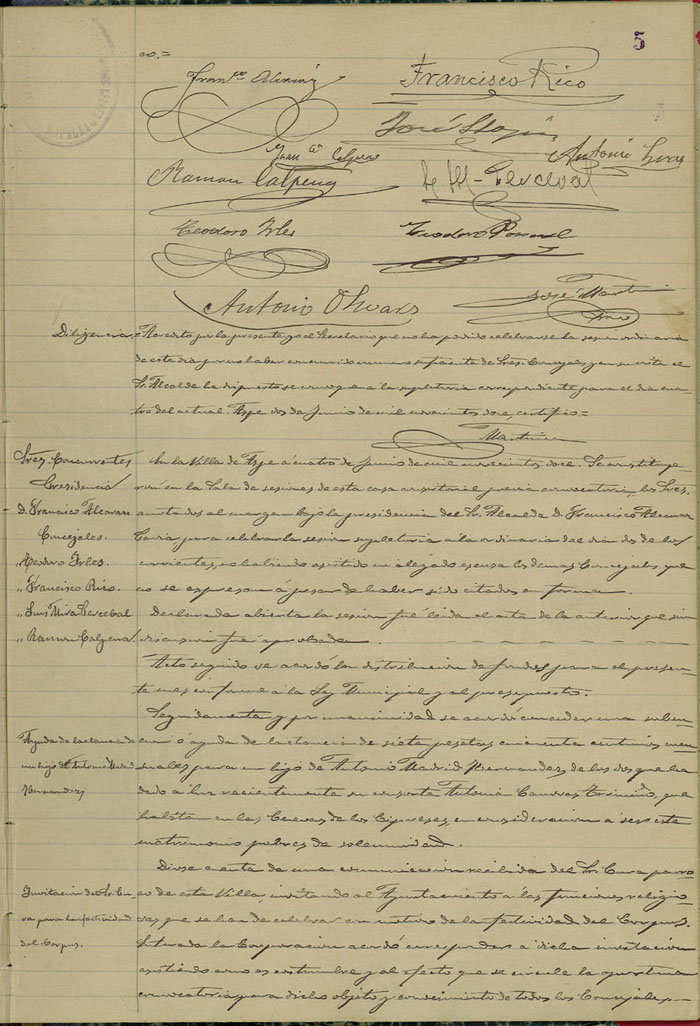 5
Francisco Rico
Ramon Calpena
Teodoro Yrles
Antonio Olivares
José Martinez
Diligencia = Acredito por la presente yo el Secretario que no ha podido celebrarse la sesion ordinaria
de este dia por no haber concurrido numero suficiente de Sres. Concejales y en su vista el
Sr. Alcalde ha dispuesto se convoque a la supletoria correspondiente para el dia cua-
tro del actual. Aspe dos de Junio de mil novecientos doce, certifico =
Martinez
Sres. Concurrentes
Presidencia
D. Francisco Alcaraz
Concejales.
" Teodoro Yrles.
" Francisco Rico.
" Luis Mira Perceval
" Ramon Calpena.
En la Villa de Aspe á cuatro de Junio de mil novecientos doce. Se constituye-
ron en la Sala de sesiones de esta casa consistorial previa convocatoria, los Sres.
anotados al margen bajo la presidencia del Sr. Alcalde D. Francisco Alcaraz
para celebrar la sesion supletoria á la ordinaria del dia dos de los
corrientes, no habiendo asistido ni alegado escusa los demas Concejales que
no se expresan á pesar de haber sido citados en forma.
Declarada abierta la sesion fué leida el acta de la anterior que sin
discusion fué aprobada.
Acto seguido se acordó la distribucion de fondos para el presen-
te mes conforme á la Ley Municipal y al presupuesto.
Ayuda de lactancia de
un hijo de Antonio Madrid
Hernandez
Seguidamente y por unanimidad se acordó conceder una suben-
cion ó ayuda de lactancia de siete pesetas cincuenta centimos men-
suales para un hijo de Antonio Madrid Hernandez, de los dos que ha
dado á luz recientemente su consorte Antonia que
habitan en las Cuevas de los Cipreses, en consideracion á ser este
matrimonio pobres de solemnidad.
Invitacion del Sr. Cu-
ra para la festividad
del Corpus.
Diose cuenta de una comunicacion recibida del Sr. Cura parro-
co de esta Villa, invitando al Ayuntamiento a las funciones religio-
sas que se han de celebrar con motivo de la festividad del Corpus.
Enterada la Corporacion acordó corresponder a dicha invitacion
asistiendo como es costumbre y al efecto que se circule la oportuna
convocatoria para dicho objeto y conocimiento de todos los Concejales.